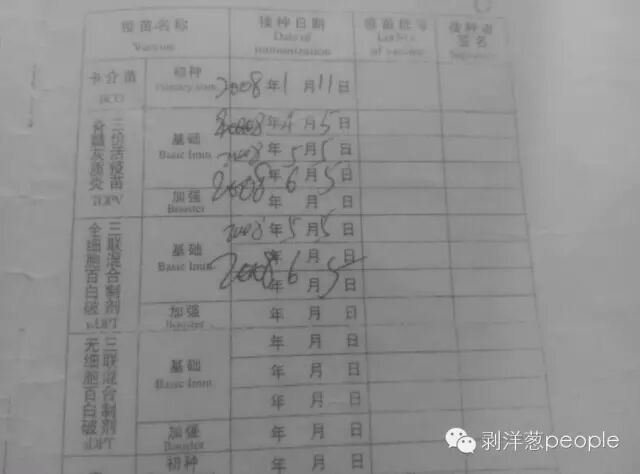 疫苗名称 接种日期 疫苗批号 接种者
Vaccine Date of immunization 签名
卡介苗 BCG 初种 2008年1月11日
脊髓灰质炎三价活疫苗 TOPV 基础 Basic Imm 2008年4月5日
2008年5月5日
2008年6月5日
加强 Booster 年 月 日
全细胞百白破三联混合制剂 wDPT 基础 Basic Imm 2008年5月5日
年 月 日
2008年6月5日
加强 Booster 年 月 日
无细胞百白破三联混合制剂 aDPT 基础 Basic Imm 年 月 日
年 月 日
年 月 日
加强 Booster 年 月 日
初种 年 月 日
剥洋葱people